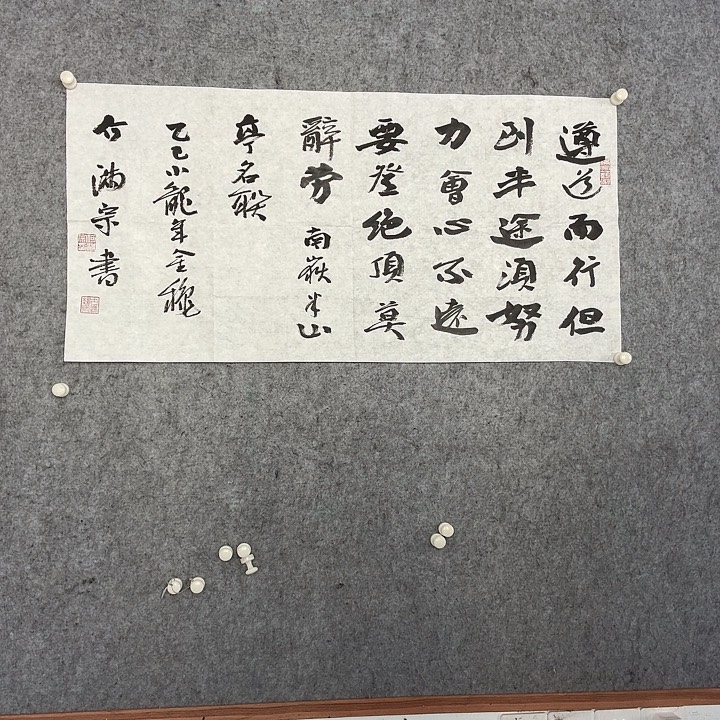 遵道而行但
到半途須努
力會心不遠
要登絶頂莫
辭勞 南嶽半山
亭名联
乙巳小龍年金穐
满宗書